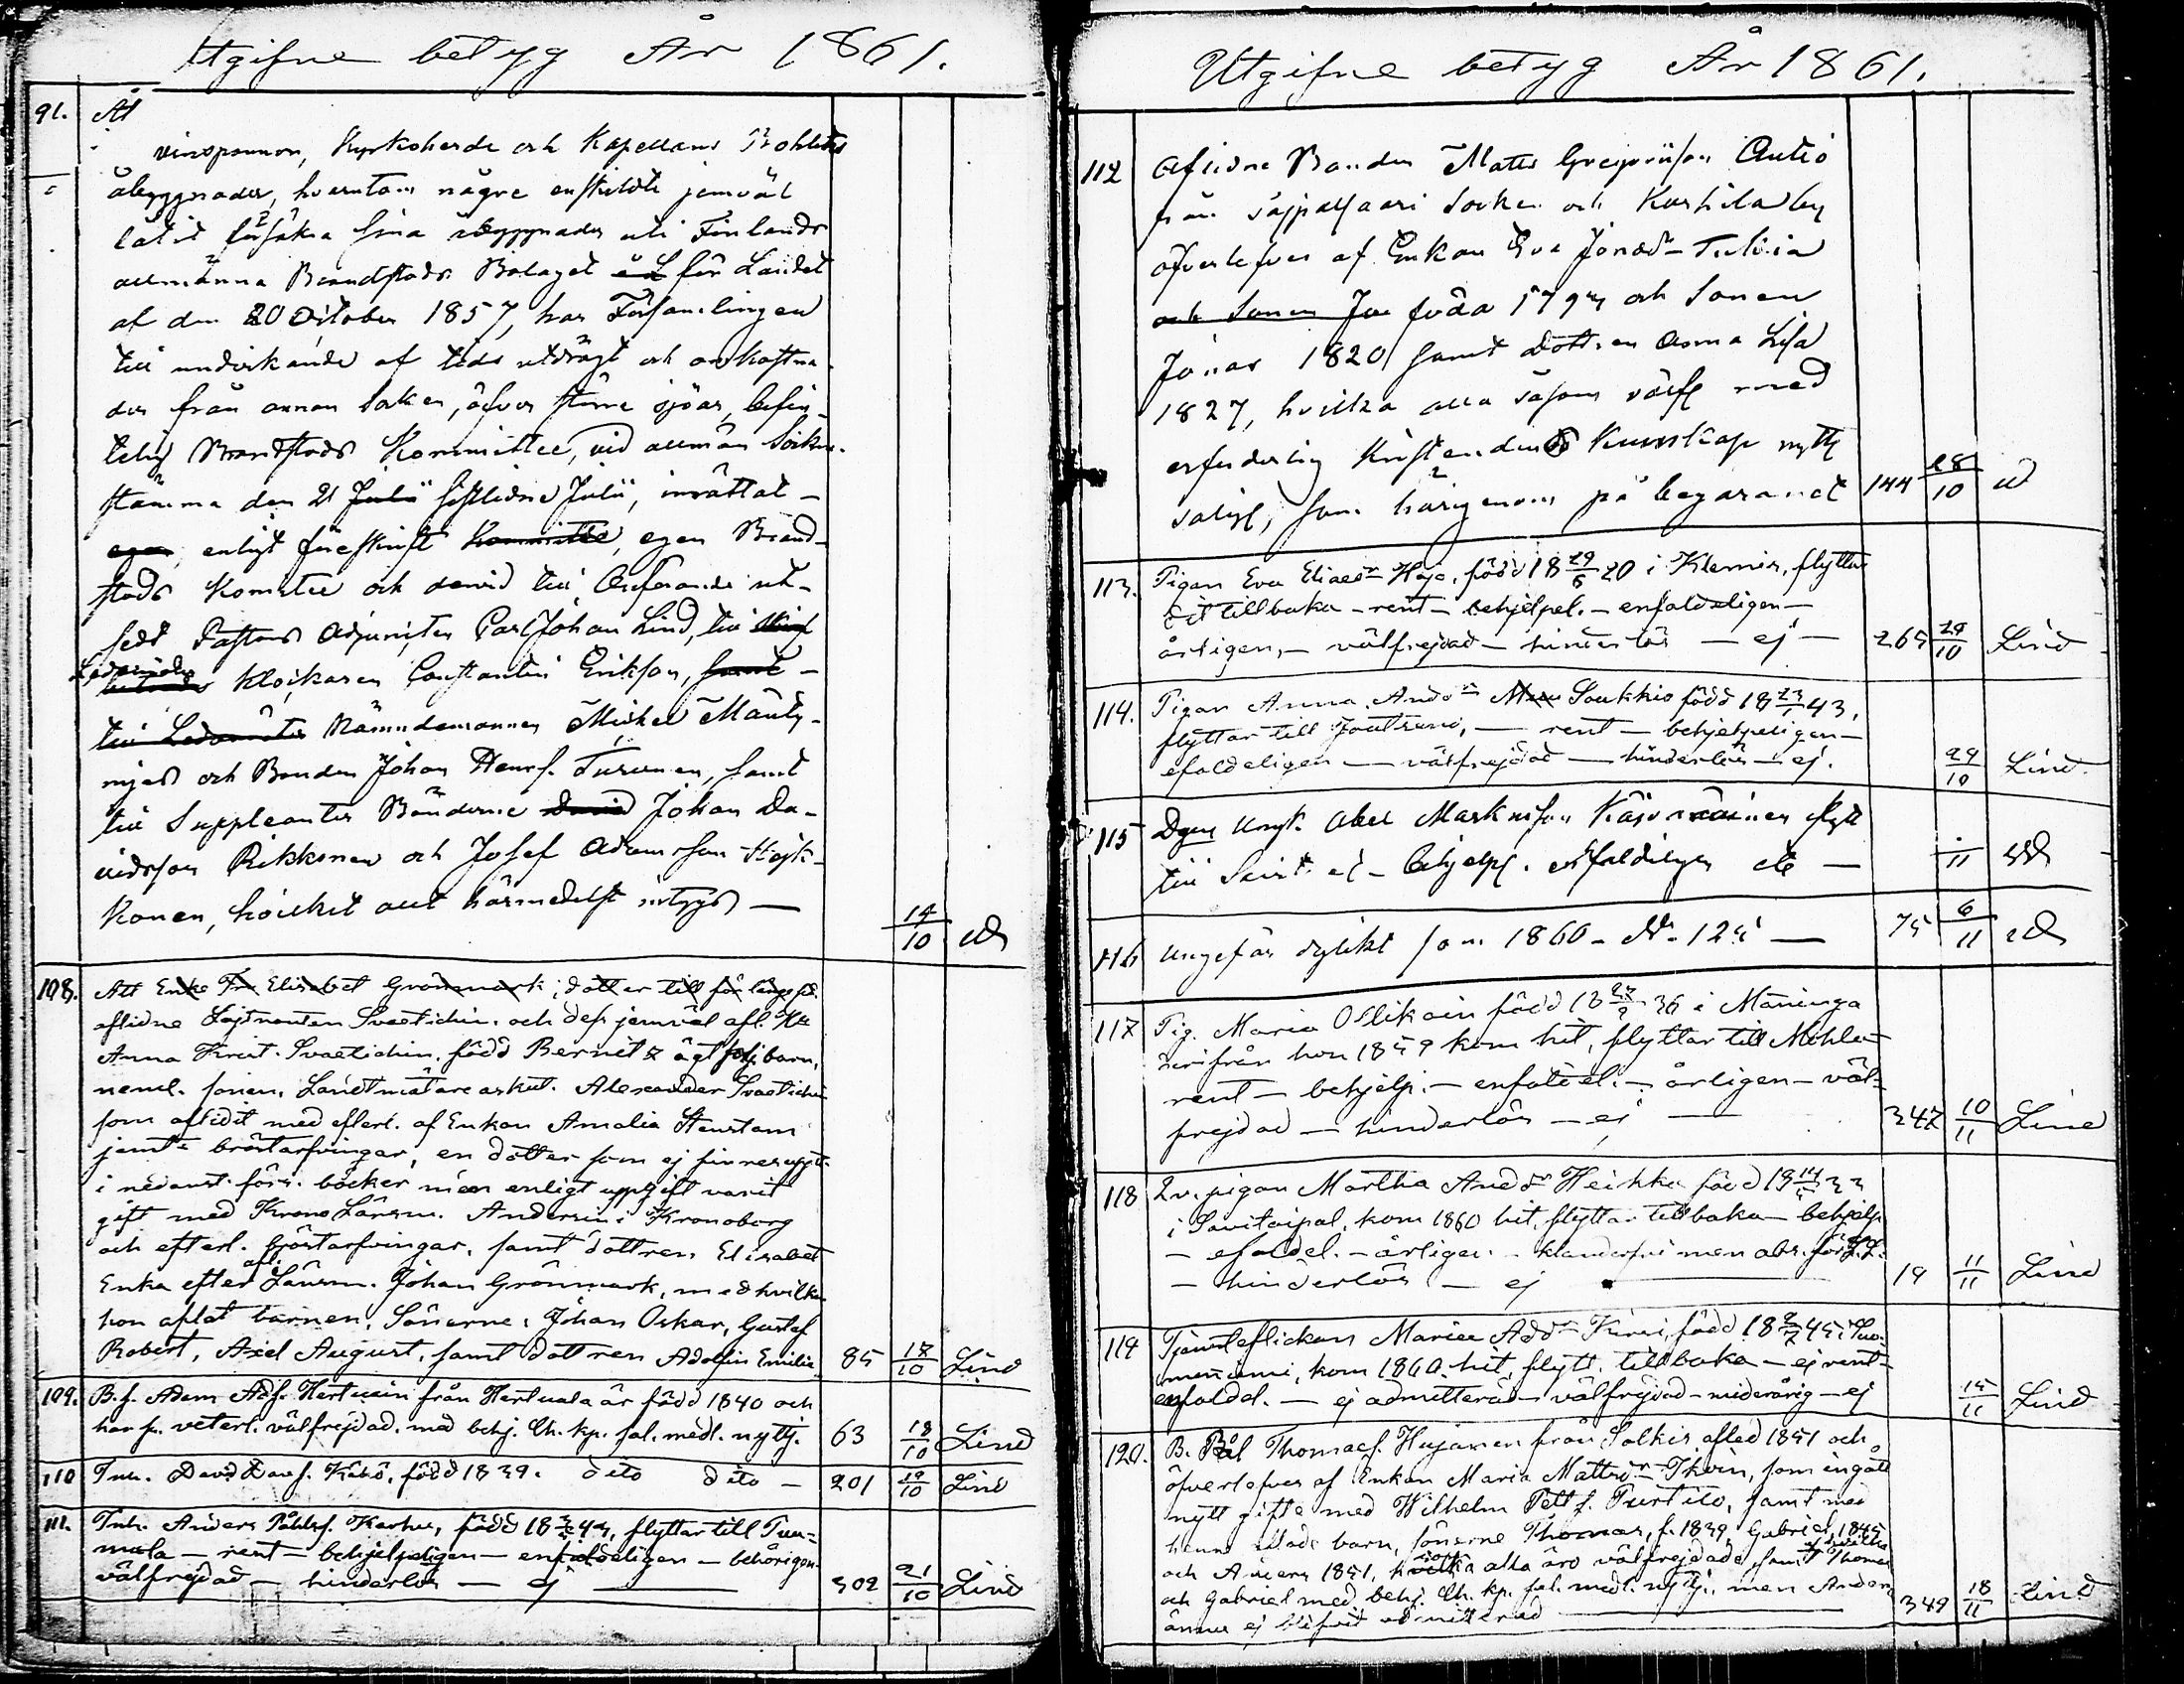 Utgifne betyg År 1861.
91. At
Kyrkoherde och Kapellans Bohlets
åbyggnader, hvarutom några enskildte jemväl
låtit försäkra sina åbyggnader uti Finlands
allmänna Brandstods Bolaget för Landet
af den 20 October 1857, har Församlingen
till undvikande af tids utdrägt och omkostna-
der från annan Socken, öfver större sjöar, befin-
telig Brandstods Kommittee, vid allmän Sockne-
stämma den 21 Julii sistlidne Julii, inrättat
egen, enligt föreskrift Kommittee, egen Brand-
stods Komitee och dervid till Ordförande ut-
sedt Pastors Adjuncten Carl Johan Lind, till
Ledamöter Klockaren Constantin Erikson, samt
till Ledamöter Nämndemannen Michel Mänty-
och Bonden Johan Henrs. Turunen, samt
till Suppleanter Bönderne David Johan Da-
vidsson Rikkonen och Josef Adamsson Höjk-
konen, hvilket allt härmedelst intygas —
14/10
108. Att Enke Fru Elisabet Grönmark, dotter till för länge sed.
aflidne Löjtnanten Svaetichin och dess jemväl afl.
Anna Krist. Svaetichin född Bernitz ägt följ. barn,
neml. sonen, Landtmätare auskult. Alexander Svaetichin
som aflidit med efterl. af Enkan Amalia Stenstam
jemte bröstarfvingar, en dotter som ej finnes uppt.
i nedanst. förs. böcker men enligt uppgift varit
gift med Krono Länsm. Andersin i Kronoborg
och efterl. bröstarfvingar, samt dottren Elisabet
Enka efter afl. Länsm. Johan Grönmark, med hvilken
hon aflat barnen, Sönerne, Johan Oskar, Gustaf
Robert, Axel August, samt dottren Adolfin Emilia 85 17/10 Lind
109. B.s. Adam Ads. Hertuain från Hertuala är född 1840 och
har s. veterl. välfrejdad, med behj. Ch. kp. sal. medl. nyttj. 63 18/10 Lind
110 Inh. David Kähö, född 1839. dito dito — 201 19/10 Lind
111. Inh. Anders Påhlsf. Karhu, född 18 43, flyttar till
— rent — behjelpeligen — enfaldeligen — behörigen
välfrejdad — hinderlös — ej — 302 21/10 Lind
Utgifne betyg År 1861.
112 Aflidne Bonden Matts Gregoriison Autio
från Säppälsaari Socken och Kurhila by
öfverlefves af Enkan Eva Jonasdr
och Sonen Jon föda 179 och Sonen
Jonas 1820 samt dottren Anna Lisa
1827, hvilka alla såsom välf med
erforderlig Kristendoms Kunskap nyttj
salig, som härigenom på begäran 144 28/10
113. Pigan Eva Eliaedr Hajo, född 18 29/6 20 i Klemis, flyttar
dit tillbaka — rent — behjelpel. — enfaldeligen —
årligen, — välfrejdad — hinderlös — ej — 265 29/10 Lind
114. Pigan Anna Andsdr Soukkio född 18 23/1 43,
flyttar till Joutseno, — rent — behjelpeligen —
efaldeligen — välfrejdad — hinderlös — ej. 29/10 Lind.
115 Dgen Ungk. Abel Markusson flytt
till — behjelpl. enfaldeligen etc —
/11
116 Ungefär dylikt som 1860 — No. 125 — 75 6/11
117 Pig. Maria Oslikain född 18 27/9 36 i Maninga
derifrån hon 1859 kom hit, flyttar till Mohla
rent — behjelp. — enfaldel. — årligen — väl-
frejdad — hinderlös — ej — 347 10/11 Lind
118 Qv. pigan Martha Andsdr Heikka född 18 33
i Savitaipal, kom 1860 hit, flyttar tillbaka — behjelp
— efaldel. — årligen. — klanderfri men abs. för
— hinderlös — ej — 19 11/11 Lind
119 Tjensteflickan Maria Addr Kirsi, född 18 45 i Suo-
menniemi, kom 1860 hit, flytt. tillbaka — ej rent —
enfaldel. — ej admitterad — välfrejdad — minderårig — ej 15/11 Lind
120. B. Pål Thomaes. Hujanen från Solkis afled 1851 och
öfverlefves af Enkan Maria Mattsdr Ikoin, som ingått
nytt gifte med Wilhelm Pett s. Purtilo, samt med
henne aflade barn, sönerne Thomas, f. 1839, Gabriel, 1845
och Anders 1851, hvilka alla äro välfrejdade samt Thomas
och Gabriel med behj. Ch. kp. sal. medl. nyttj., men Anders
ännu ej blifvit admitterad — 349 18/11 Lind